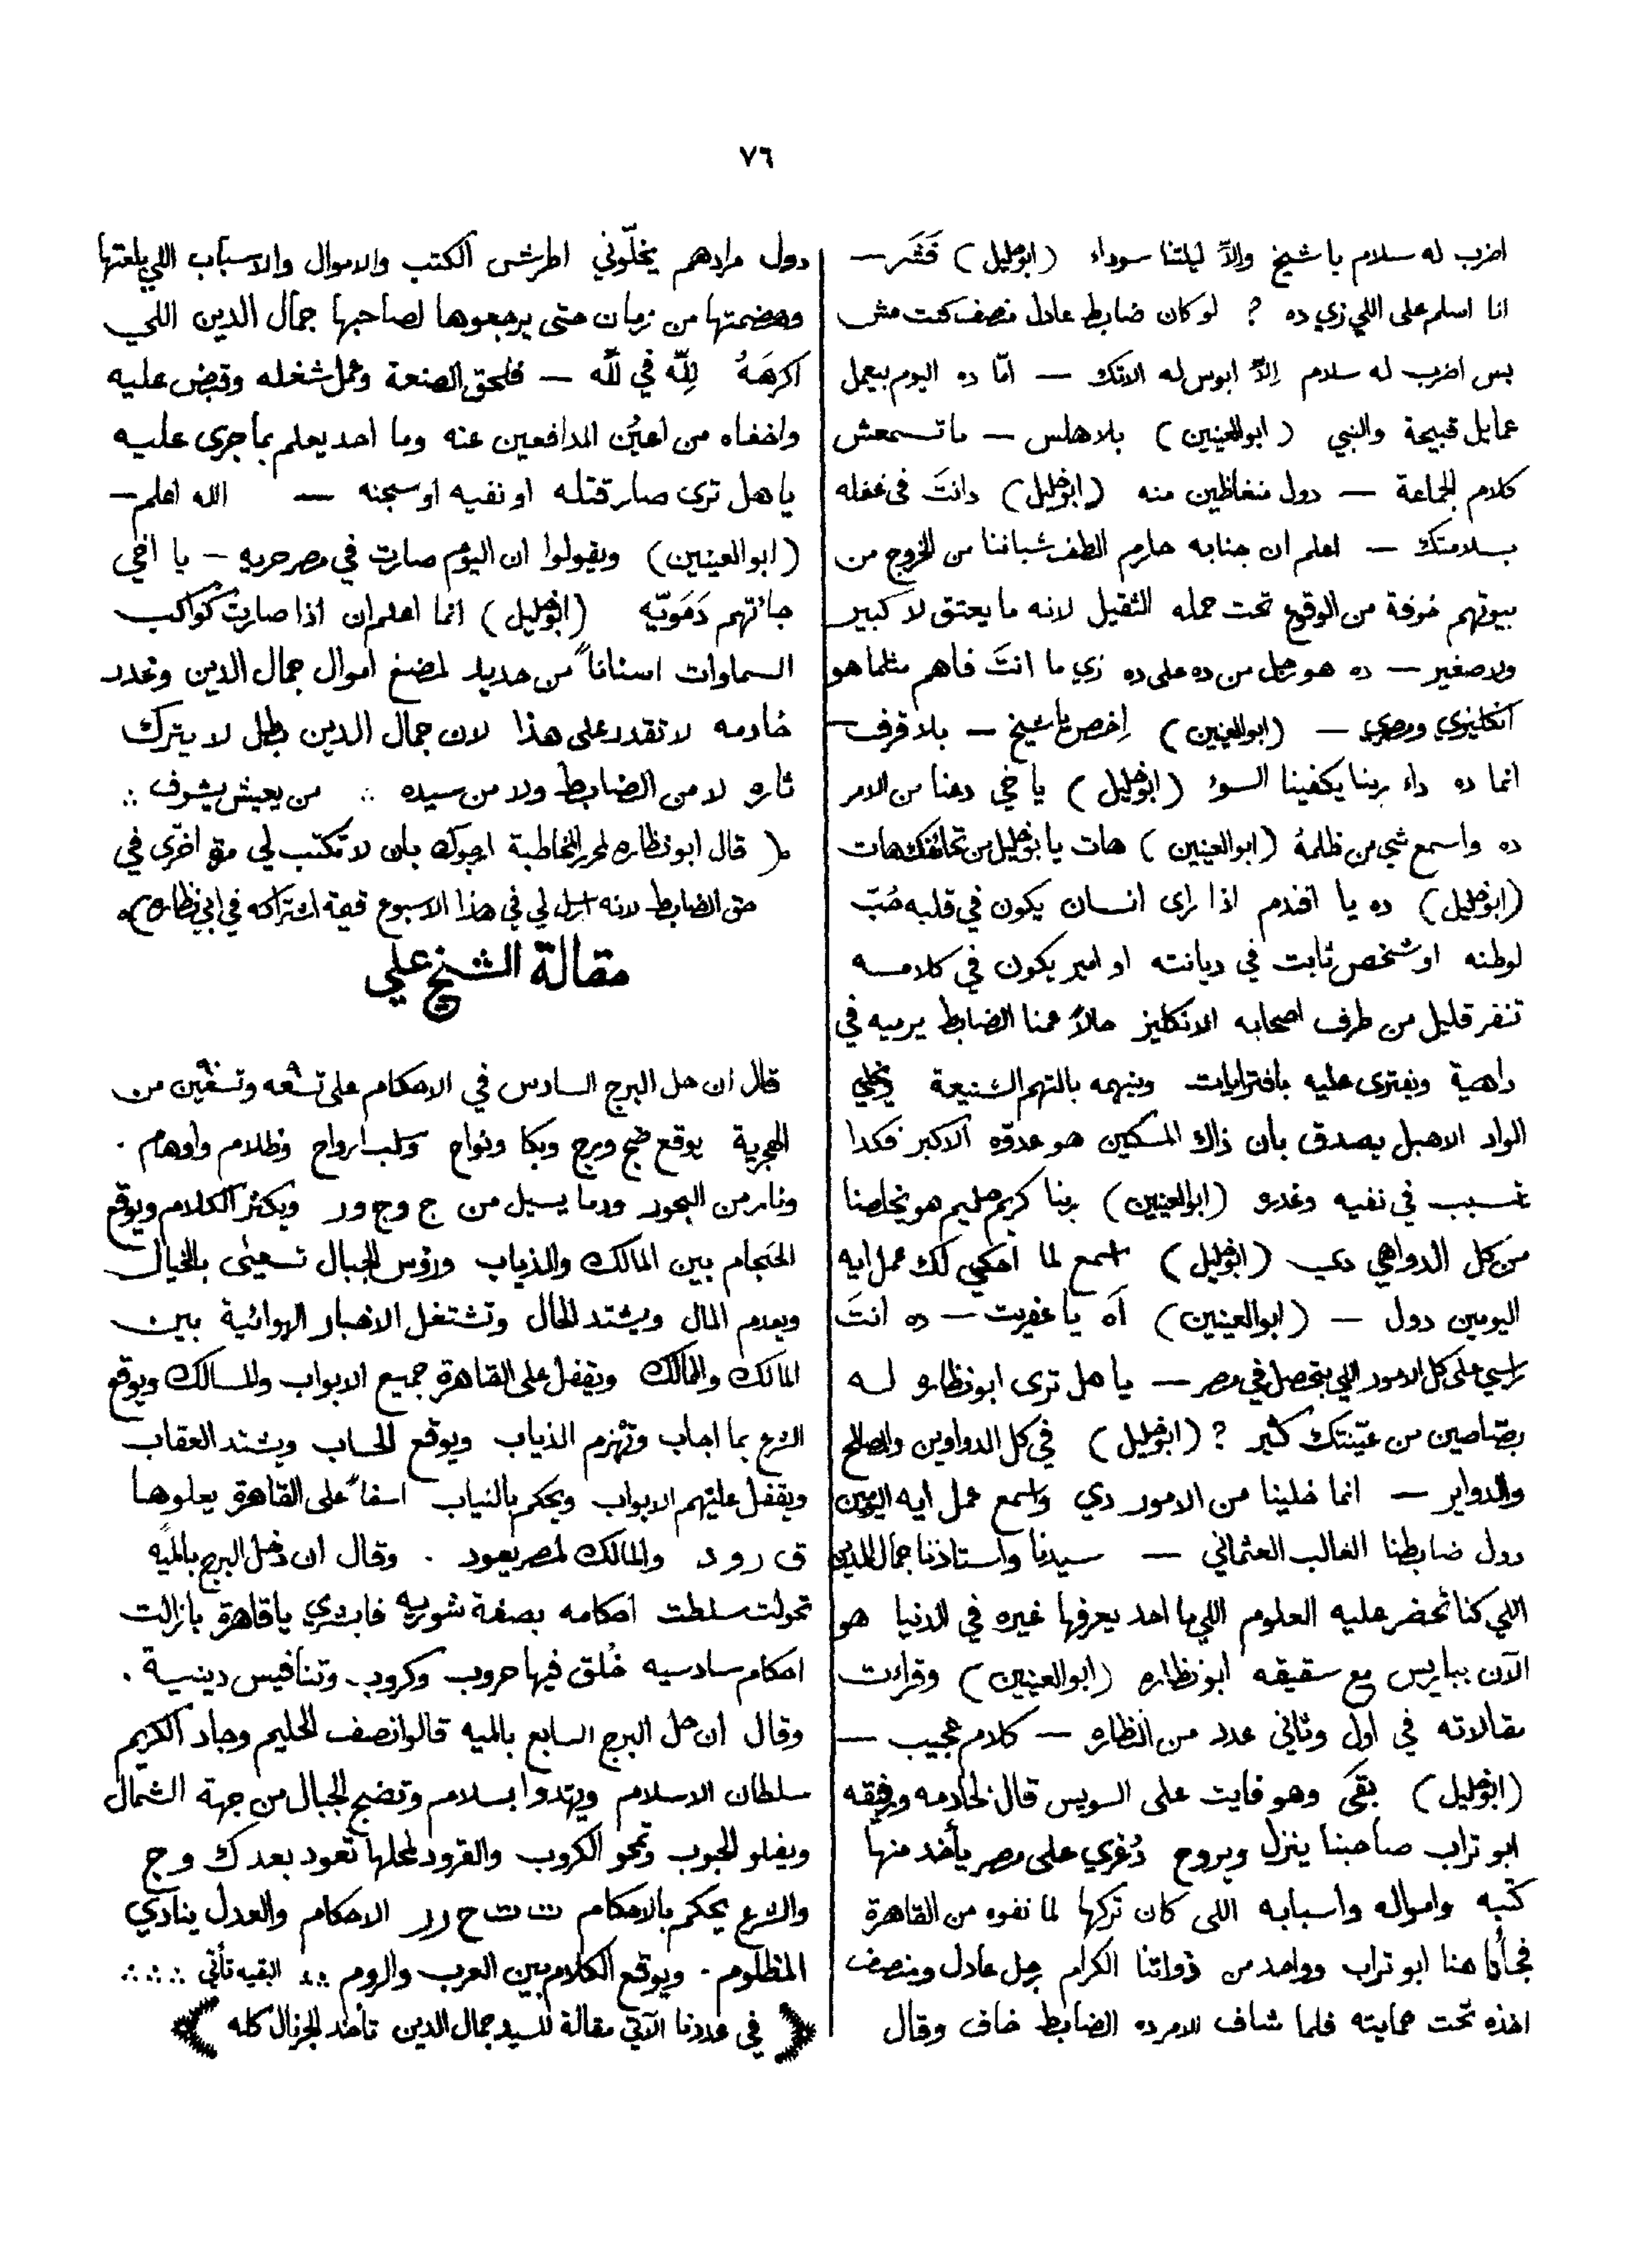 ٧٦
اضرب له سلام يا شيخ والاّ ليلتنا سوداء (ابو خليل) فَشَر —
انا اسلم على اللي زي ده ? لو كان ضابط عادل منصف كنت مش
بس اضرب له سلام اِلاّ ابوس له الاتك — امّا ده اليوم بيعمل
عمايل قبيحة والنبي (ابو العينين) بلا هلس — ما تسمعش
كلام الجماعة — دول منغاظين منه (ابو خليل) دانتَ في غفله
بسلامتك — اعلم ان جنابه حارم الطف شباننا من الخروج من
بيوتهم خوفة من الوقوع تحت حمله الثقيل لانه ما يعتق لا كبير
ولا صغير — ده هو رجل من ده على ده زي ما انتَ فاهم مثلما هو
انكليزي ومصري — (ابو العينين) اِخص يا شيخ — بلا قرف —
انما ده داء ربنا يكفينا السوء (ابو خليل) يا خي دعنا من الامر
ده واسمع شي من ظلمهُ (ابو العينين) هات يا بو خليل من تحائفك هات
(ابو خليل) ده يا افندم اذا راى انسان يكون في قلبه حُبّ
لوطنه او شخص ثابت في ديانته او امير يكون في كلامه
تنفر قليل من طرف اصحابه الانكليز حالاً عمنا الضابط يرميه في
داهية ويفترى عليه بافترايات ويتهمه بالتهم الشنيعة ويخلي
الواد الاهبل يصدق بان ذاك المسكين هو عدوّه الاكبر فكدا
تسبب في نفيه وغدره (ابو العينين) ربنا كريم حليم هو يخلصنا
من كل الدواهي دي (ابو خليل) اسمع لما احكي لك عمل ايه
اليومين دول — (ابو العينين) آه يا عفريت — ده انتَ
راسي على كل الامور اللي بتحصل في مصر — يا هل ترى ابو نظاره له
بصّاصين من عيّنتك كثير ? (ابو خليل) في كل الدواوين والمصالح
والدواير — انما خلينا من الامور دي واسمع عمل ايه اليومين
دول ضابطنا الغالب العثماني — سيدنا واستاذنا جمال الدين
اللي كنا نحضر عليه العلوم اللي ما احد يعرفها غيره في الدنيا هو
الآن بباريس مع سقيقه ابو نظاره (ابو العينين) وقراءت
مقالاته في اول وثاني عدد من النظاره — كلام عجيب —
(ابو خليل) بقَى وهو فايت على السويس قال لخادمه ورفيقه
ابو تراب صاحبنا ينزل ويروح دُغري على مصر يأخد منها
كتبه وامواله واسبابه اللى كان تركها لما نفوه من القاهرة
فجأنا هنا ابو تراب وواحد من ذواتنا الكرام رجل عادل ومنصف
اخذه تحت حمايته فلما شاف الامر ده الضابط خاف وقال
دول مرادهم يخلّوني اطرش الكتب والاموال والاسباب اللي بلعتها
وهضمتها من زمان حتى يرجعوها لصاحبها جمال الدين اللي
اكرهَهُ لِلّه في لله — فلحق الصنعة وعمل شغله وقبض عليه
واخفاه من اعيُن المدافعين عنه وما احد يعلم بما جرى عليه
يا هل ترى صار قتله او نفيه او سجنه — الله اعلم —
(ابو العينين) ويقولوا ان اليوم صارت في مصر حريه — يا اخي
جائتهم دَمَويّه (ابو خليل) انما اعلم ان اذا صارت كواكب
السماوات اسناناً من حديد لمضغ اموال جمال الدين وغدر
خادمه لا تقدر على هذا لان جمال الدين بطل لا يترك
ثاره لا من الضابط ولا من سيده ∴ من يعيش يشوف ∴
( قال ابو نظاره لمحرر المخاطبة ارجوك بان لا تكتب لي مرّة اخرى في
حق الضابط لانه ارسل لي في هذا الاسبوع قيمة اشتراكه في ابي نظاره)
مقالة الشيخ علي
قال ان حل البرج السادس في الاحكام على تسعه وتسعين من
الهجرية يوقع ضج ورج وبكا ونواح وسلب ارواح وظلام واوهام .
ونار من البحور ودما يسيل من ج و ج و ر ويكثر الكلام ويوقع
الخصام بين المالك والذياب ورؤس الجبال تسعى بالخيال
ويعدم المال ويشتد الحال وتشتغل الاخبار الهوائية بين
المالك والممالك ويقفل على القاهرة جميع الابواب والمسالك ويوقع
الشرع بما اجاب وتهزم الذياب ويوقع الحساب ويشتد العقاب
ويقفل عليهم الابواب ويحكم بالنياب اسفاً على القاهرة يعلوها
ق ر و د والمالك لمصر يعود . وقال ان دخل البرج بالميه
تحولت سلطت احكامه بصفة شوريه فابشري يا قاهرة بازالت
احكام سادسيه خُلق فيها حروب وكروب وتنافيس دينية .
وقال ان حل البرج السابع بالميه قالوا نصف الحليم وجاد الكريم
سلطان الاسلام ويهتدوا بسلام وتضج الجبال من جهة الشمال
ويغلو الحبوب وتمحو الكروب والقرود لمحلها تعود بعد ك و ج
والشرع يحكم بالاحكام ت ت ح ر ر الاحكام والعدل ينادي
المظلوم . ويوقع الكلام بين العرب والروم ∴ البقيه تأتي ∴∴
( في عددنا الآتي مقالة للسيد جمال الدين تأخد الجرنال كله )